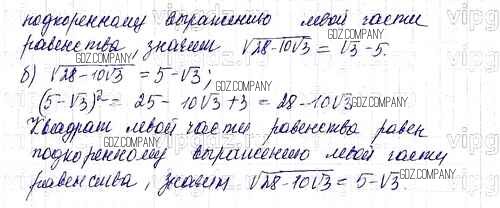 подкоренному выражению левой части
равенства, значит √28-10√3 = √3-5.
GDZ.COMPANY
б) √28-10√3 = 5-√3;
GDZ.COMPANY
(5-√3)² = 25-10√3+3 = 28-10√3
GDZ.COMPANY
GDZ.COMPANY
Квадрат левой части равенства равен
GDZ.COMPANY
подкоренному выражению левой части
GDZ.COMPANY
равенства, значит √28-10√3 = 5-√3.
GDZ.COMPANY